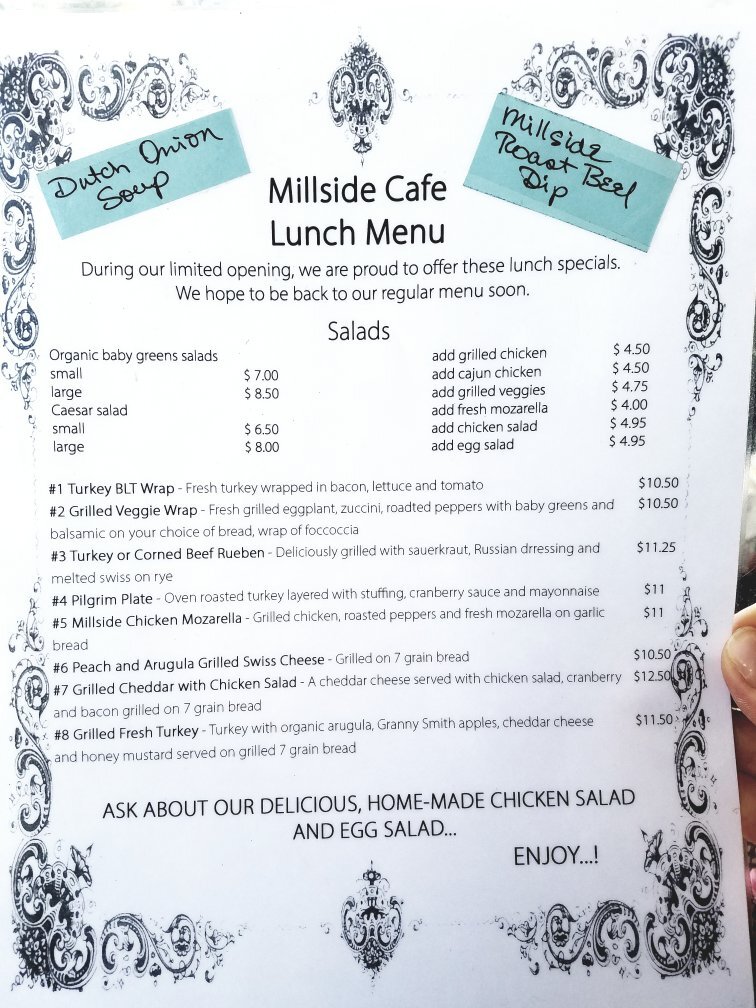 Dutch Onion
Soup
Millside
Roast Beef
Dip
Millside Cafe
Lunch Menu
During our limited opening, we are proud to offer these lunch specials.
We hope to be back to our regular menu soon.
Salads
Organic baby greens salads
small $ 7.00
large $ 8.50
Caesar salad
small $ 6.50
large $ 8.00
add grilled chicken $ 4.50
add cajun chicken $ 4.50
add grilled veggies $ 4.75
add fresh mozarella $ 4.00
add chicken salad $ 4.95
add egg salad $ 4.95
#1 Turkey BLT Wrap - Fresh turkey wrapped in bacon, lettuce and tomato $10.50
#2 Grilled Veggie Wrap - Fresh grilled eggplant, zuccini, roadted peppers with baby greens and $10.50
balsamic on your choice of bread, wrap of foccoccia
#3 Turkey or Corned Beef Rueben - Deliciously grilled with sauerkraut, Russian drressing and $11.25
melted swiss on rye
#4 Pilgrim Plate - Oven roasted turkey layered with stuffing, cranberry sauce and mayonnaise $11
#5 Millside Chicken Mozarella - Grilled chicken, roasted peppers and fresh mozarella on garlic $11
bread
#6 Peach and Arugula Grilled Swiss Cheese - Grilled on 7 grain bread $10.50
#7 Grilled Cheddar with Chicken Salad - A cheddar cheese served with chicken salad, cranberry $12.50
and bacon grilled on 7 grain bread
#8 Grilled Fresh Turkey - Turkey with organic arugula, Granny Smith apples, cheddar cheese $11.50
and honey mustard served on grilled 7 grain bread
ASK ABOUT OUR DELICIOUS, HOME-MADE CHICKEN SALAD
AND EGG SALAD...
ENJOY...!